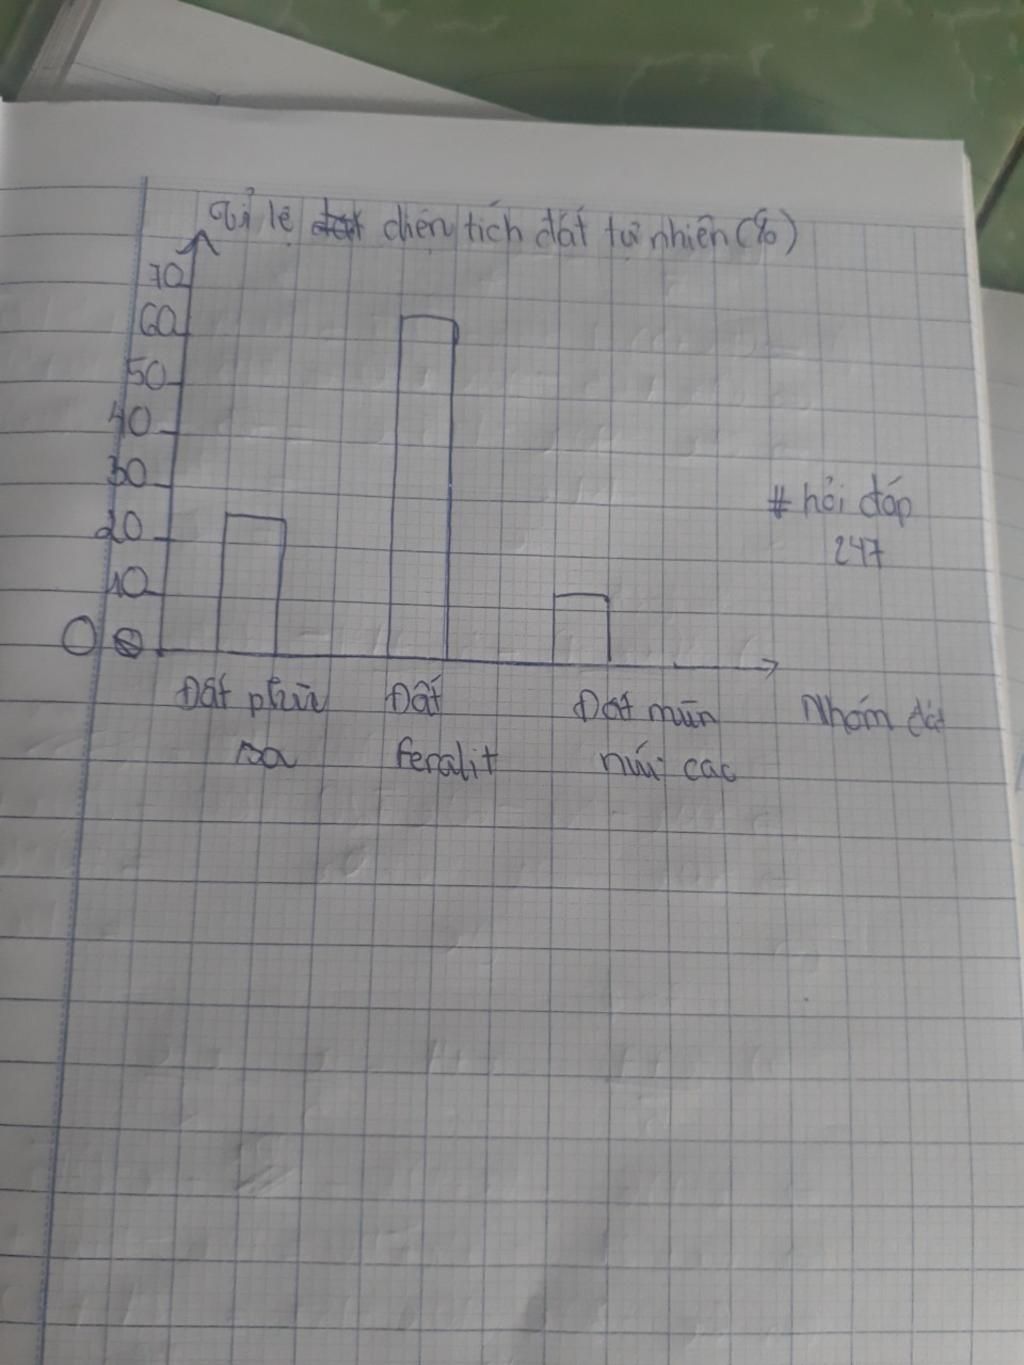 Tỉ lệ diện tích đất tự nhiên (%)
70
60
50
40
30
20
10
0
# hỏi đáp
247
Đất phù
sa
Đất
feralit
Đất mùn
núi cac
Nhóm đất